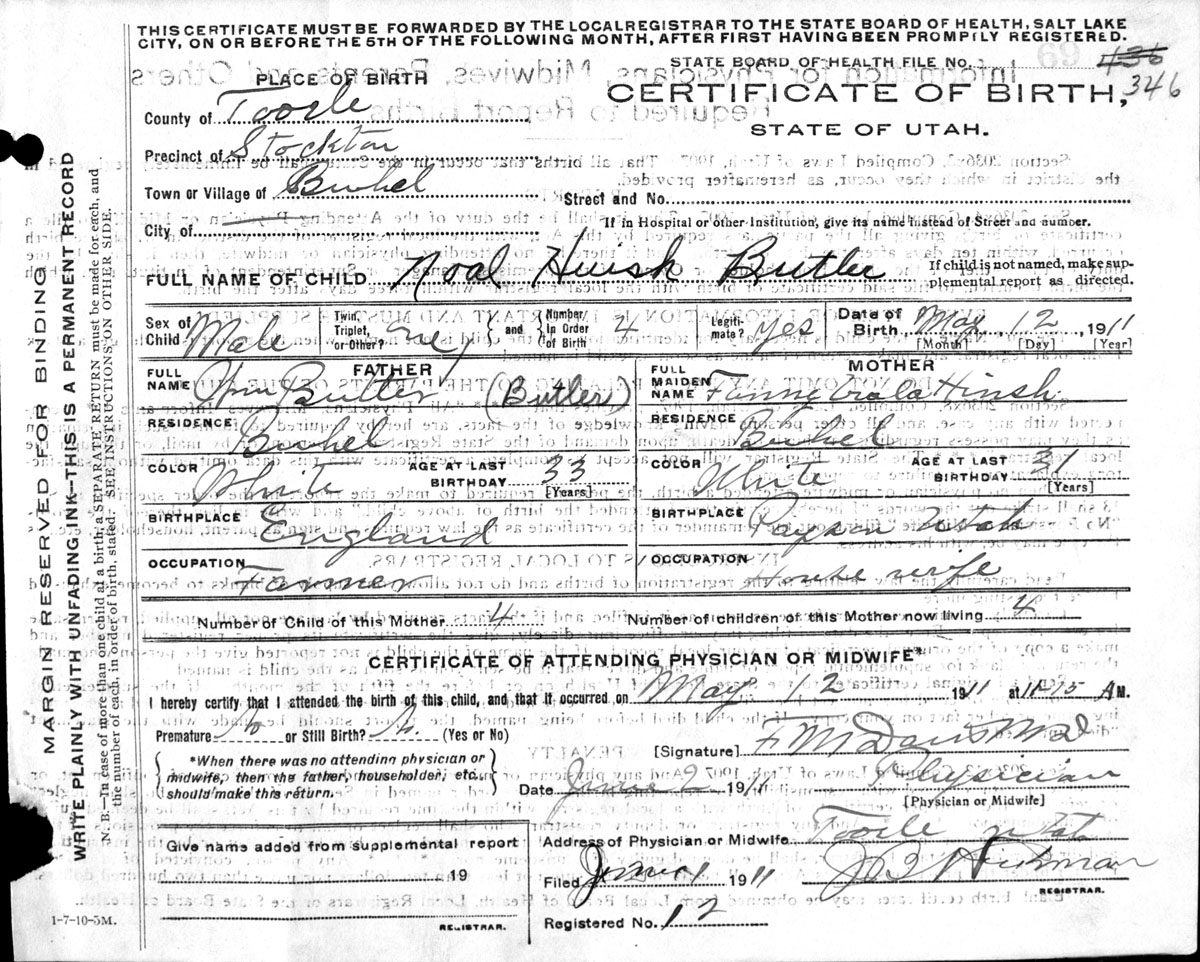 THIS CERTIFICATE MUST BE FORWARDED BY THE LOCAL REGISTRAR TO THE STATE BOARD OF HEALTH, SALT LAKE
CITY, ON OR BEFORE THE 5TH OF THE FOLLOWING MONTH, AFTER FIRST HAVING BEEN PROMPTLY REGISTERED.
STATE BOARD OF HEALTH FILE No. 436
346
PLACE OF BIRTH
CERTIFICATE OF BIRTH,
STATE OF UTAH.
County of Tooele
Precinct of Stockton
Town or Village of Buhel
Street and No.
City of
If in Hospital or other Institution, give its name instead of Street and number.
FULL NAME OF CHILD Noal Hinsh Butler
If child is not named, make supplemental report as directed.
Sex of Child Male
Twin, Triplet, or Other? one
and Number In Order of Birth 4
Legitimate? yes
Date of Birth May 12 1911
[Month] [Day] [Year]
FATHER
FULL NAME Wm Butler (Butler)
RESIDENCE Buhel
COLOR White
AGE AT LAST BIRTHDAY 33
[Years]
BIRTHPLACE England
OCCUPATION Farmer
MOTHER
FULL MAIDEN NAME Fanny Hinsh
RESIDENCE Buhel
COLOR White
AGE AT LAST BIRTHDAY 31
[Years]
BIRTHPLACE Payson Utah
OCCUPATION House wife
Number of Child of this Mother 4
Number of children of this Mother now living 4
CERTIFICATE OF ATTENDING PHYSICIAN OR MIDWIFE*
I hereby certify that I attended the birth of this child, and that it occurred on May 12 1911 at A M.
Premature No or Still Birth? No (Yes or No)
*When there was no attending physician or
midwife, then the father, householder, etc.
should make this return.
[Signature] F M Davis MD
Date June 1911
Physician
[Physician or Midwife]
Give name added from supplemental report
19
REGISTRAR.
Address of Physician or Midwife Tooele Utah
Filed June 1 1911
Hickman
REGISTRAR.
Registered No. 12
1-7-10-5M.
MARGIN RESERVED FOR BINDING
WRITE PLAINLY WITH UNFADING INK—THIS IS A PERMANENT RECORD
N. B.—In case of more than one child at a birth, a SEPARATE RETURN must be made for each, and
the number of each, in order of birth, stated. SEE INSTRUCTIONS ON OTHER SIDE.